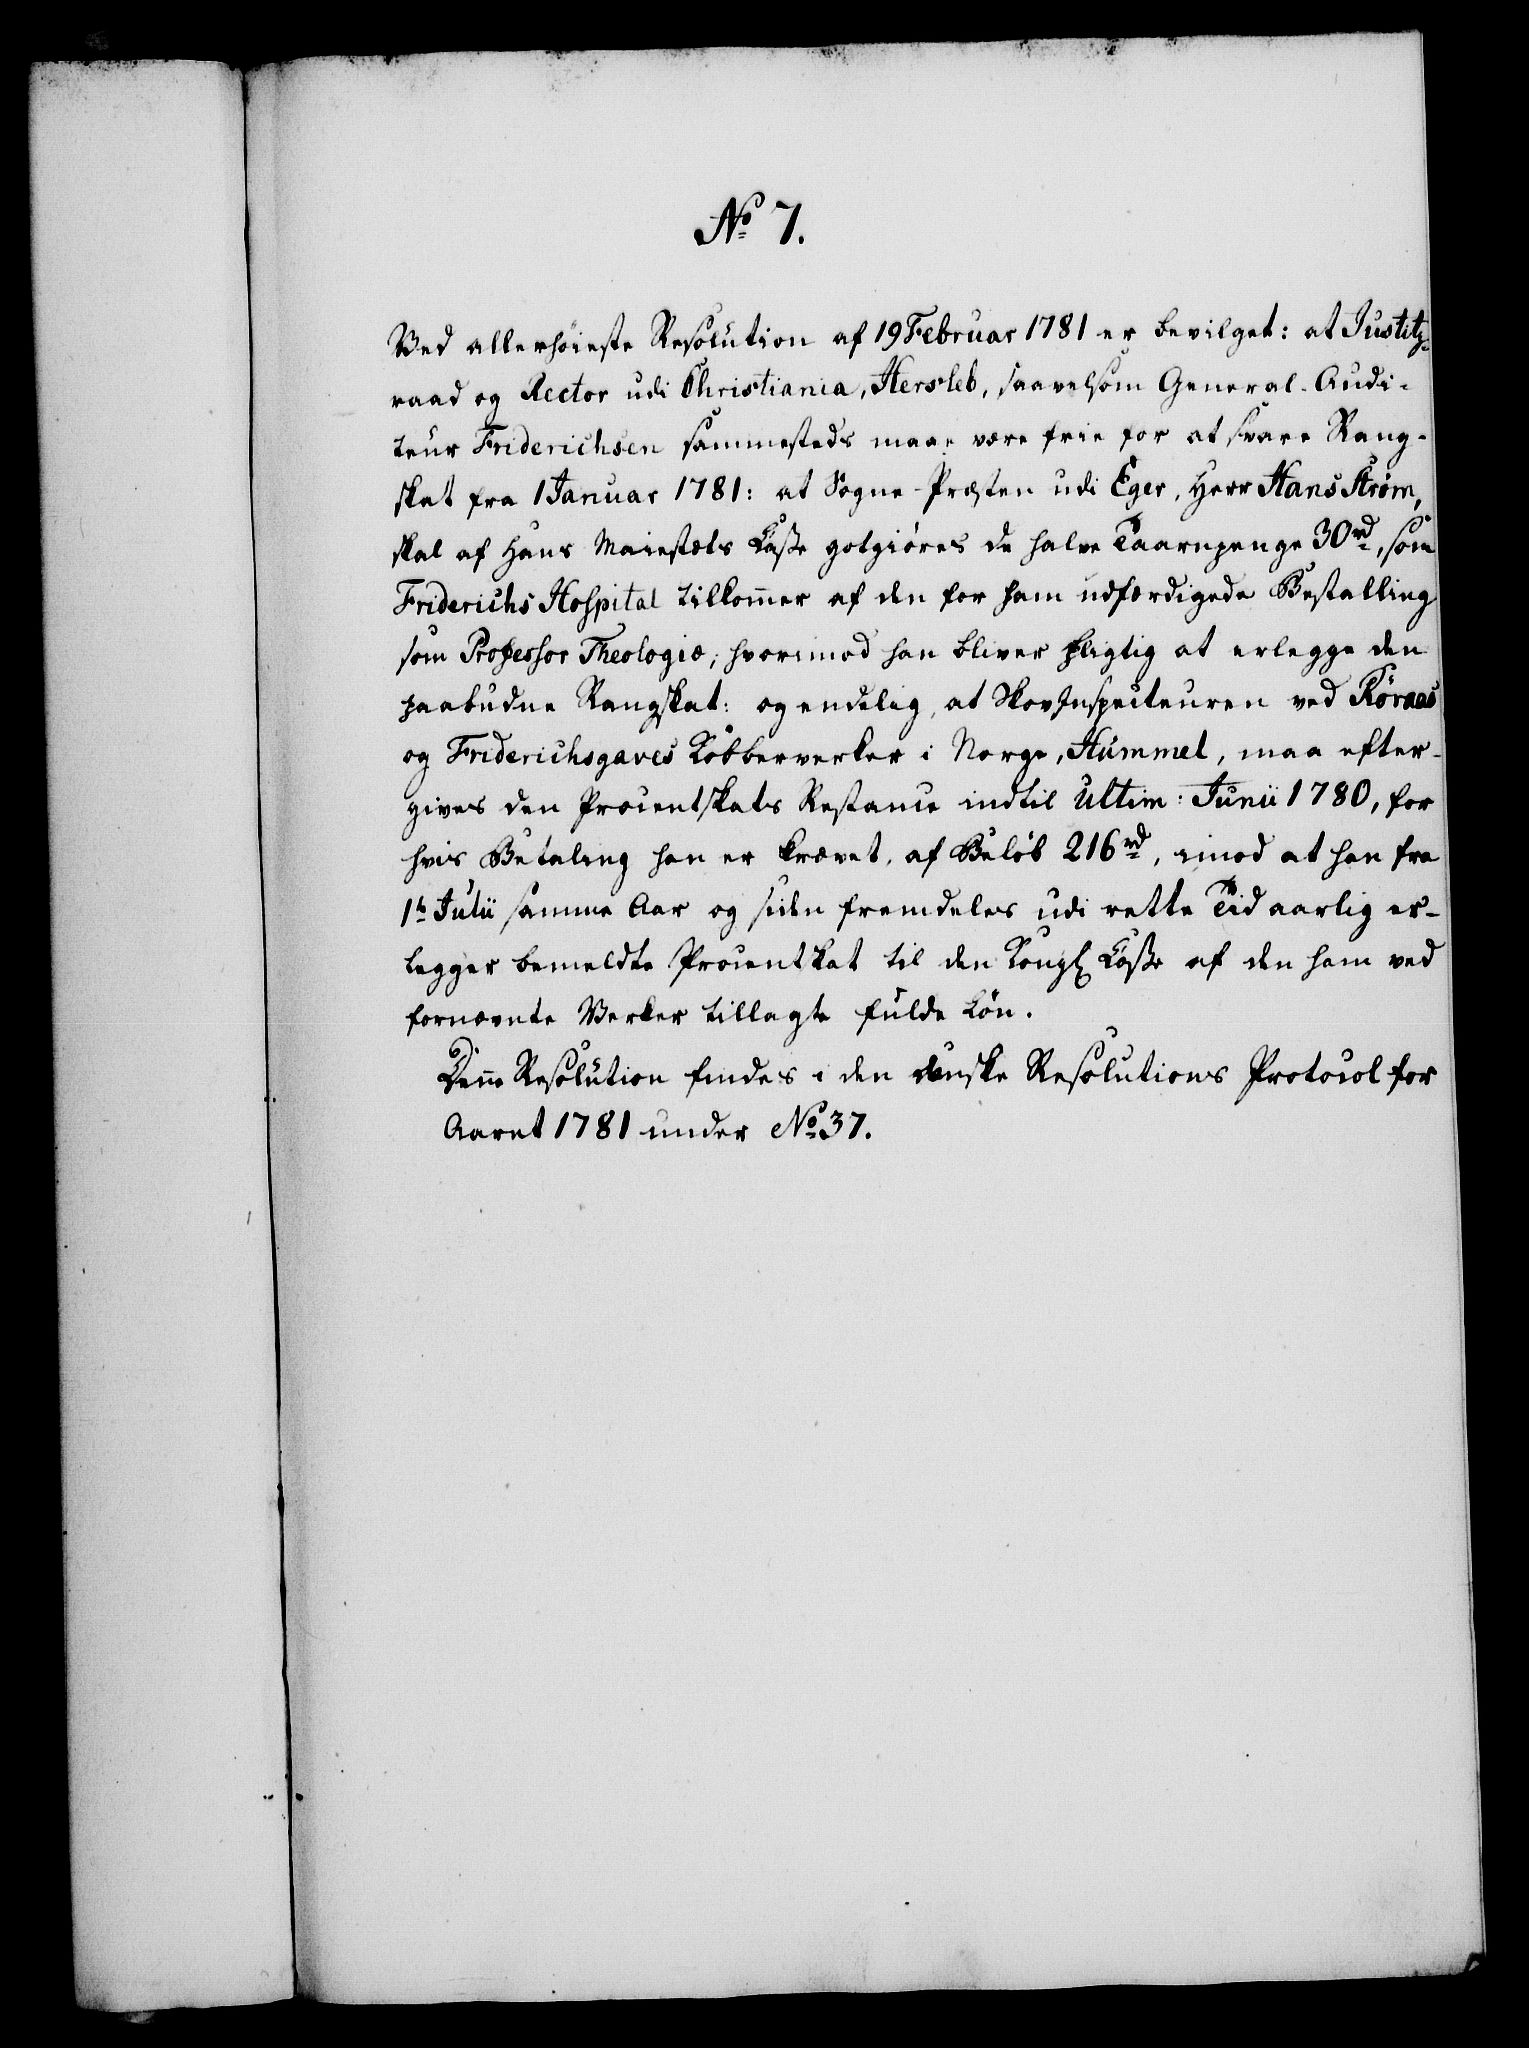 No 7.
Ved allerhöieste Resolution af 19 Februar 1781 er bevilget: at Justitz-
raad og Rector udi Christiania, Hersleb, saavelsom General-Audi-
teur Friderichsen sammesteds maae være frie for at svare Rang-
skat fra 1 Januar 1781: at Sogne-Præsten udi Eger, Herr Hans Strøm,
skal af Hans Maiestæts Casse gotgiöres de halve Taarnpenge 30 rd, som
Friderichs Hospital tilkom̄er af den for ham udfærdigede Bestalling
som Professor Theologiæ; hvorimod han bliver pligtig at erlegge den
paabudne Rangskat: og endelig, at Skov Inspecteuren ved Röraas
og Friderichsgaves Kobberverker i Norge, Hummel, maa efter-
gives den Procentskats Restance indtil Ultim: Junii 1780, for
hvis Betaling han er krævet, af Belöb 216 rd, imod at han fra
1t Julii samme Aar og siden fremdeles udi rette Tid aarlig er-
legger bemeldte Procentskat til den Kongl Casse af den ham ved
fornævnte Verker tillagte fulde Lön.
Den̄e Resolution findes i den danske Resolutions Protocol for
Aaret 1781 under No 37.